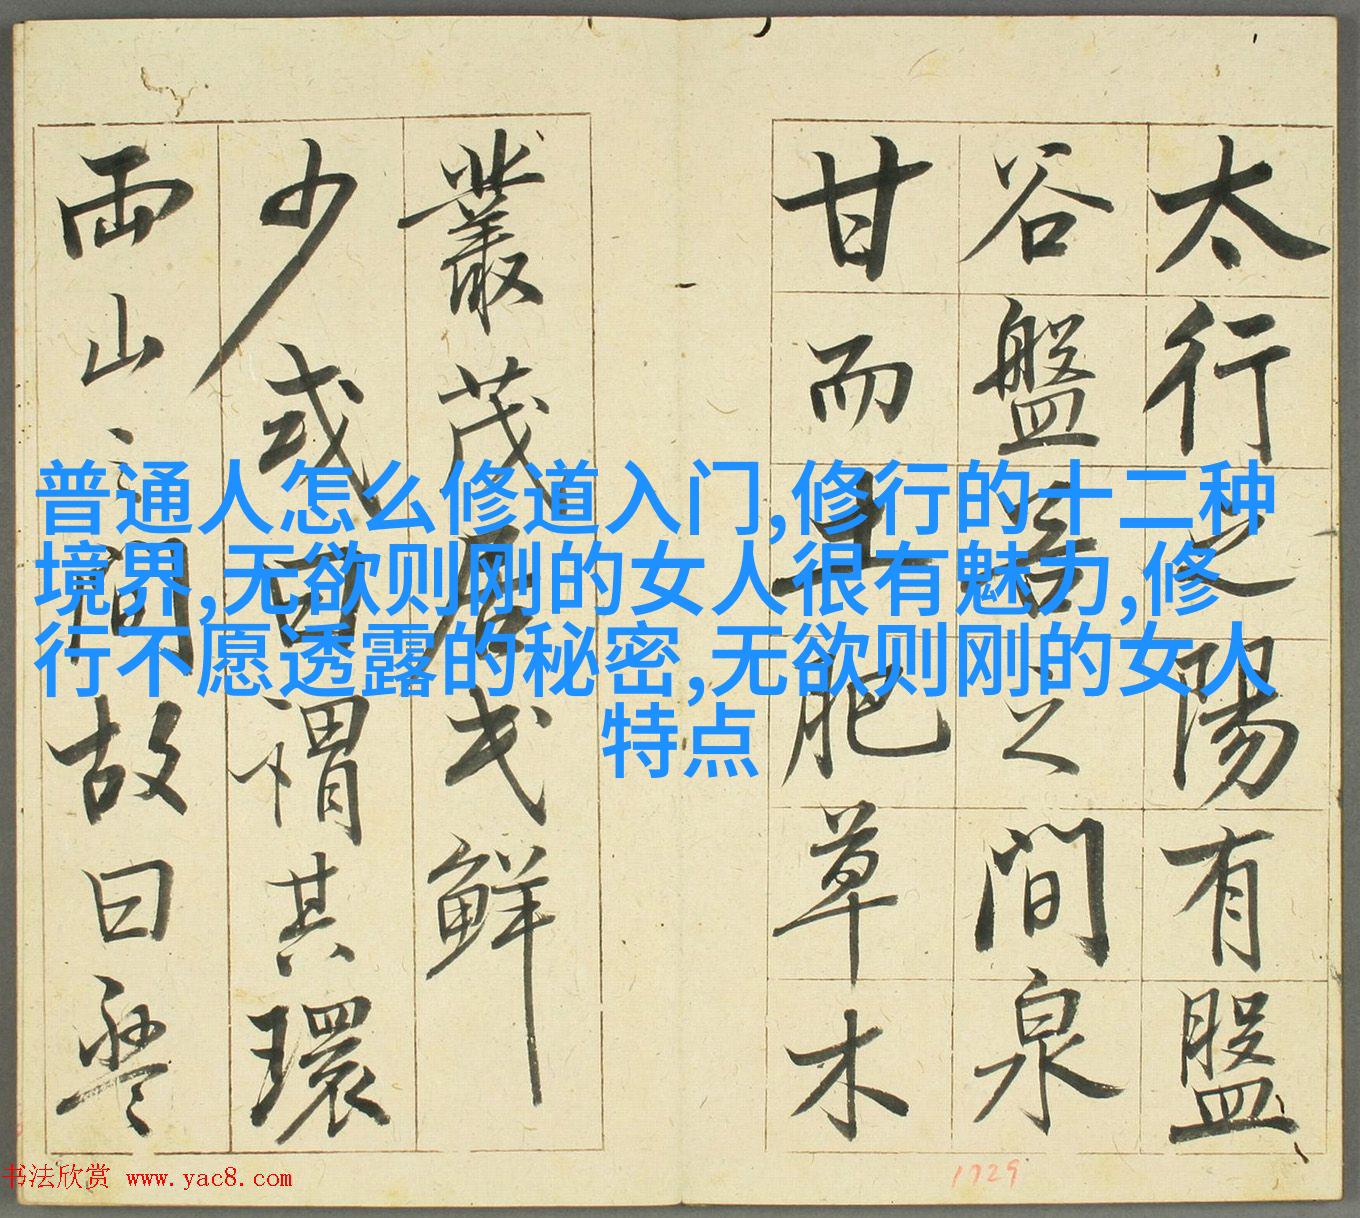 太行之陽有盤
谷盤谷之間泉
甘而土肥草木
叢茂居民鮮
少或曰謂其環
兩山之間故曰盤
普通人怎么修道入门,修行的十二种
境界,无欲则刚的女人很有魅力,修
行不愿透露的秘密,无欲则刚的女人
特点
书法欣赏 www.yac8.com
1729